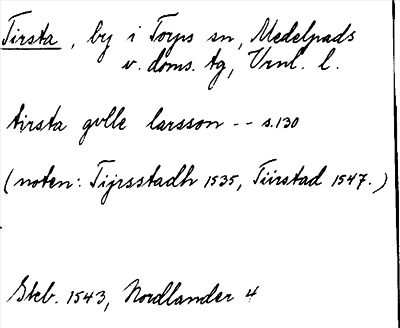 Tirsta, by i Torps sn, Medelpads
v. doms. tg, Vrnl. l.
tirsta gvlle larsson -- s.130
(noten: Tijrsstadh 1535, Tiirstad 1547.)
Skb. 1543, Nordlander 4